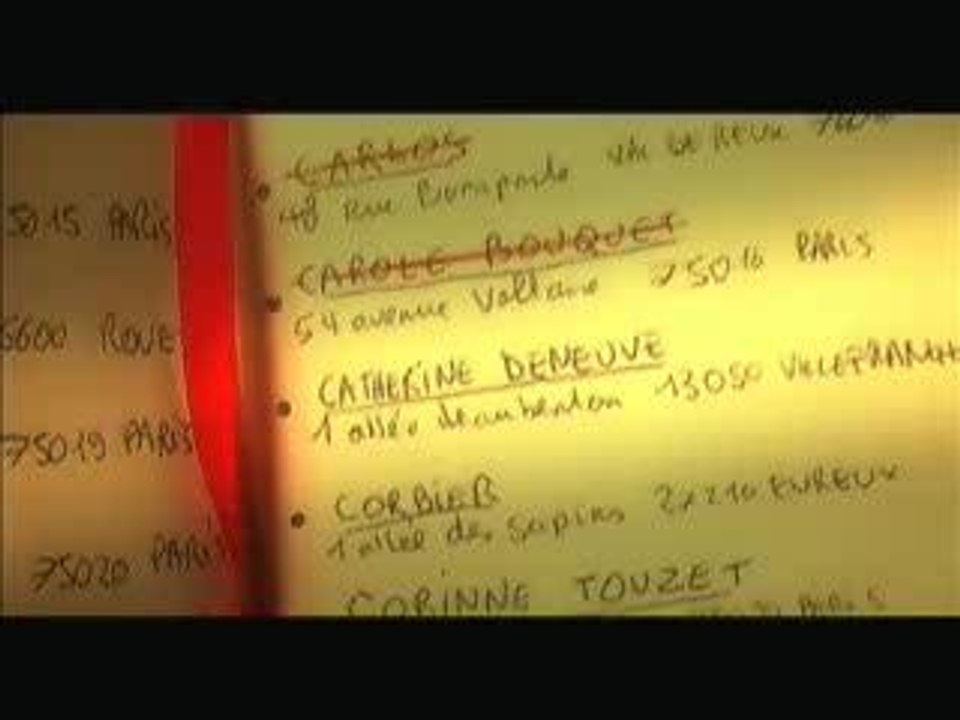 5015 PARIS
6600 ROUE
75019 PARIS
75020 PARIS
CARLOS
48 Rue Bonaparte
CAROLE BOUQUET
54 avenue Voltaire 75016 PARIS
CATHERINE DENEUVE
1 allée 13050 VILLEFRANCH
CORBIER
1 allée des sapins 27210 EVREUX
CORINNE TOUZET